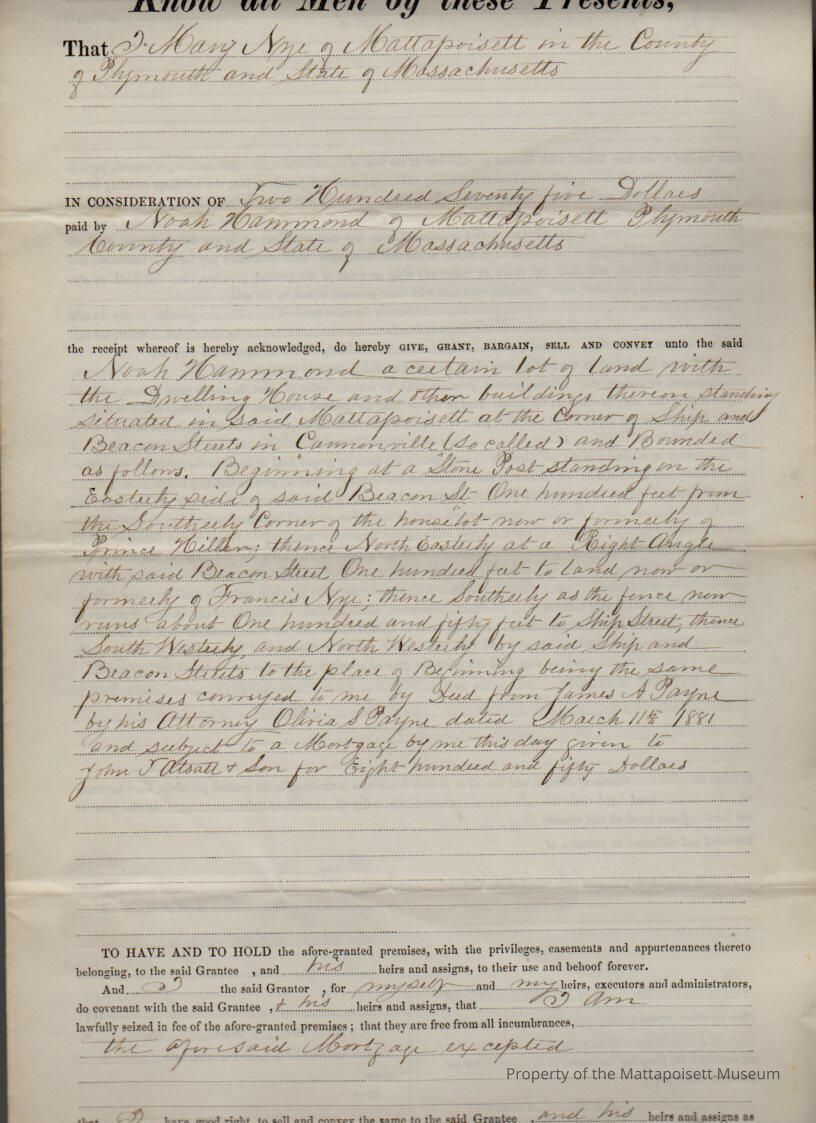 Know all Men by these Presents,
That I Mary Nye of Mattapoisett in the County
of Plymouth and State of Massachusetts
IN CONSIDERATION OF Two Hundred Seventy five Dollars
paid by Noah Hammond of Mattapoisett Plymouth
County and State of Massachusetts
the receipt whereof is hereby acknowledged, do hereby GIVE, GRANT, BARGAIN, SELL AND CONVEY unto the said
Noah Hammond a certain lot of land with
the Dwelling House and other buildings thereon standing
situated in said Mattapoisett at the Corner of Ship and
Beacon Streets in Cannonville (so called) and Bounded
as follows. Beginning at a Stone Post standing on the
Easterly side of said Beacon St One hundred feet from
the Southerly Corner of the house lot now or formerly of
Prince Hiller; thence North Easterly at a Right Angle
with said Beacon Street One hundred feet to land now or
formerly of Francis Nye; thence Southerly as the fence now
runs about One hundred and fifty feet to Ship Street, thence
South Westerly and North Westerly by said Ship and
Beacon Streets to the place of Beginning being the same
premises conveyed to me by Deed from James A Payne
by his Attorney Olivia S Payne dated March 11th 1881
and subject to a Mortgage by me this day given to
John T Atsatt & Son for Eight hundred and fifty Dollars
TO HAVE AND TO HOLD the afore-granted premises, with the privileges, easements and appurtenances thereto
belonging, to the said Grantee , and his heirs and assigns, to their use and behoof forever.
And I the said Grantor , for myself and my heirs, executors and administrators,
do covenant with the said Grantee , & his heirs and assigns, that I am
lawfully seized in fee of the afore-granted premises; that they are free from all incumbrances,
the aforesaid Mortgage excepted
Property of the Mattapoisett Museum
that I have good right to sell and convey the same to the said Grantee , and his heirs and assigns as